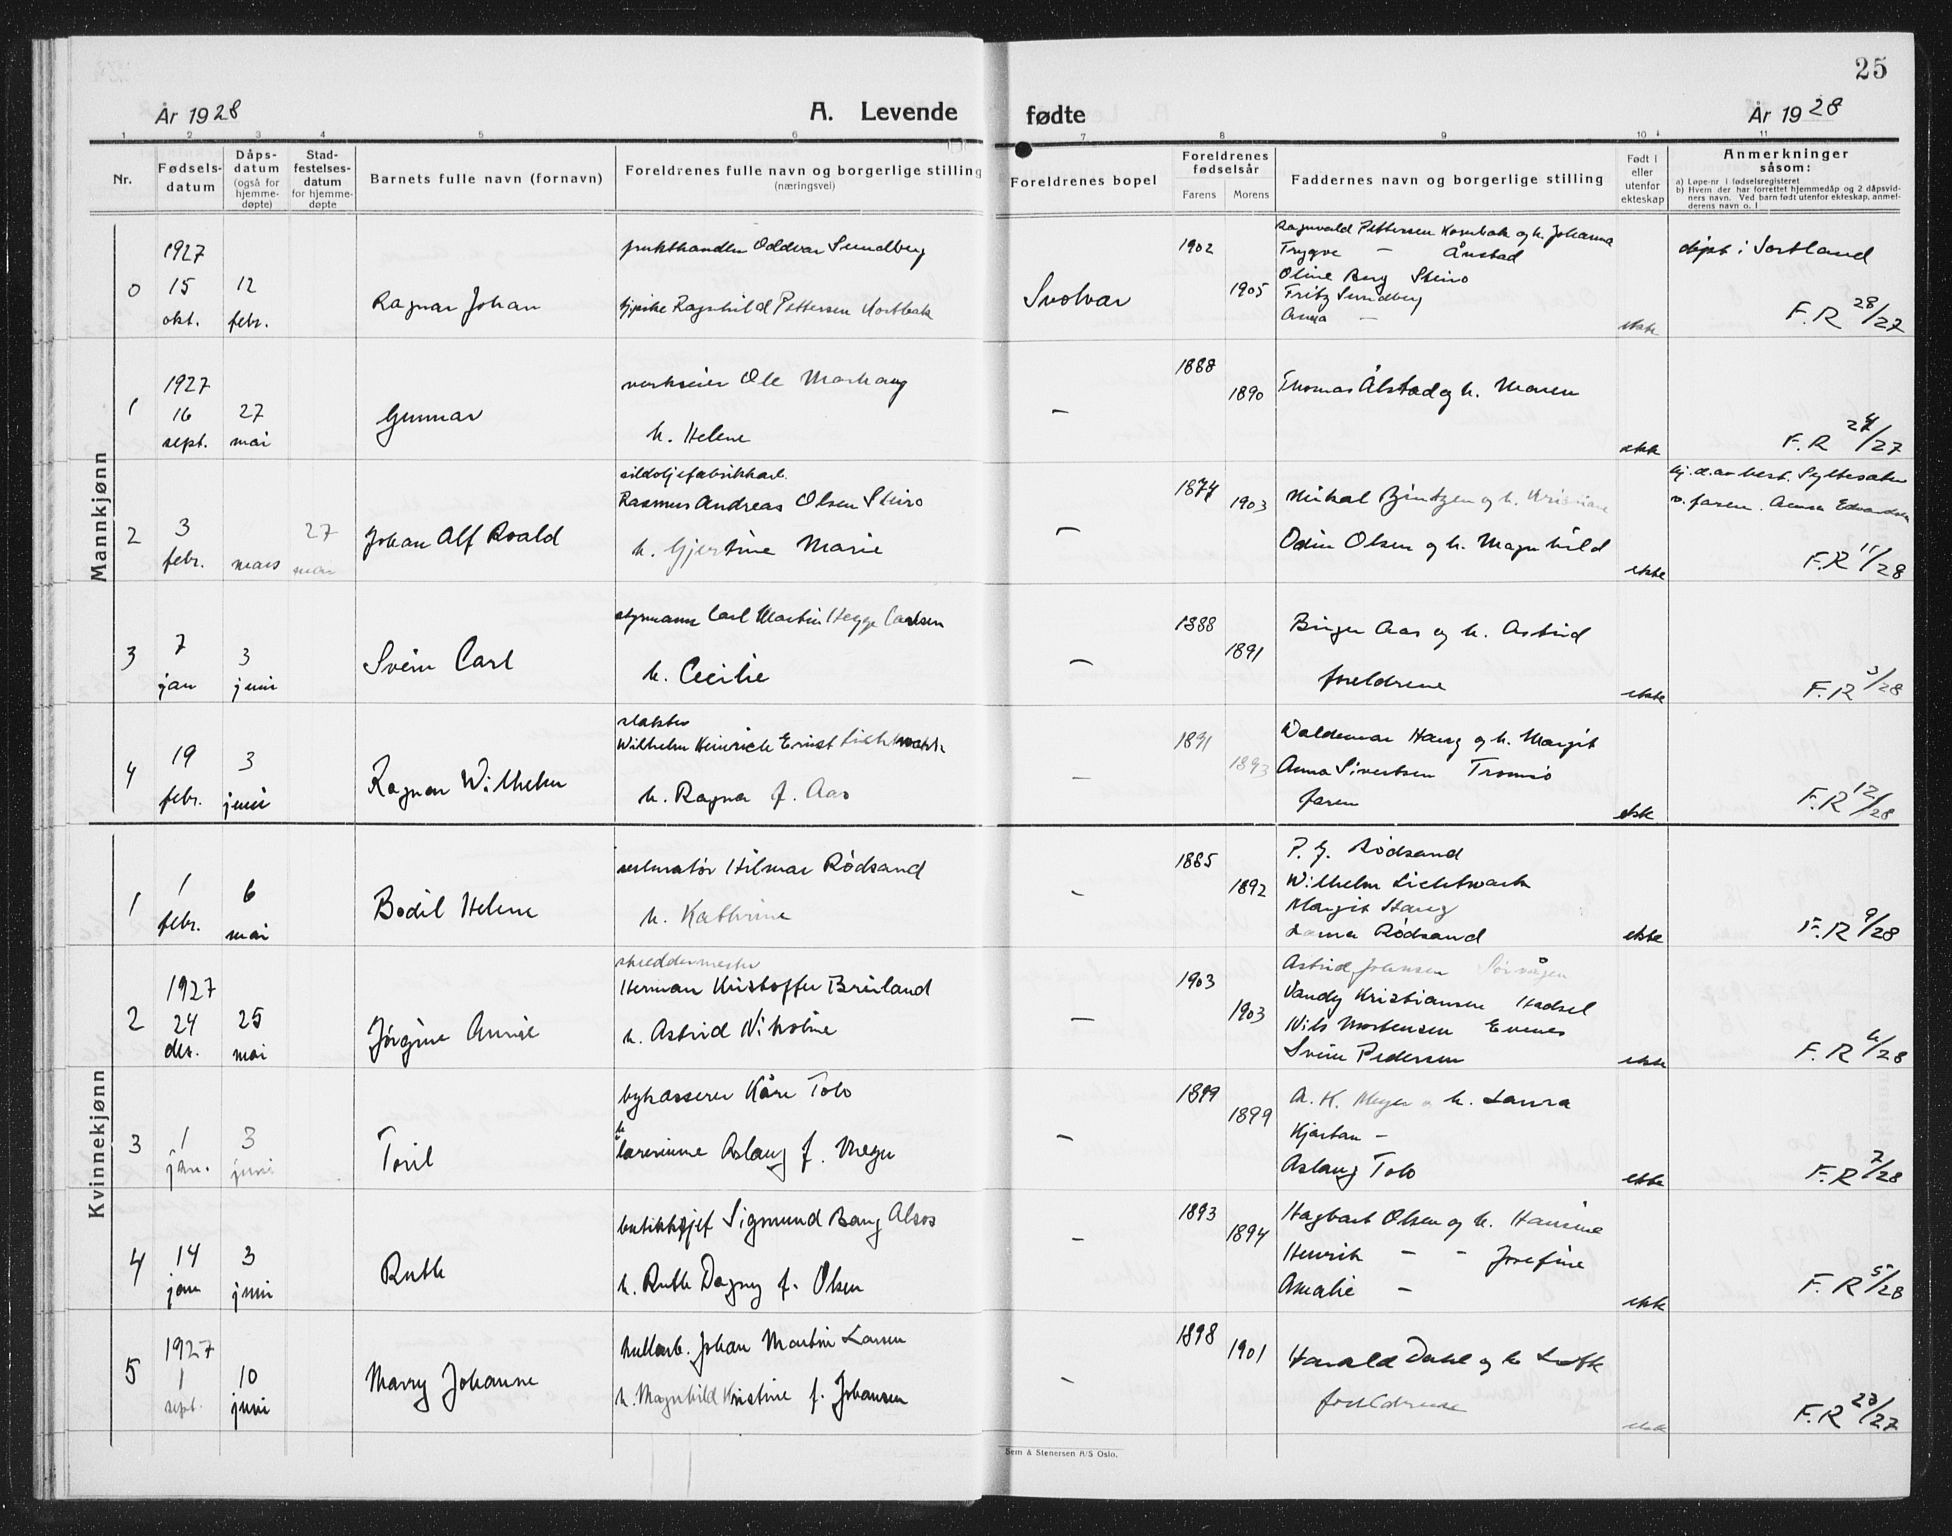 25
År 1928 A. Levende fødte År 1928
1 2 3 4 5 6 7 8 9 10 11
Nr.
Fødsels-
datum
Dåps-
datum
(også for
hjemme-
døpte)
Stad-
festelses-
datum
for hjemme-
døpte
Barnets fulle navn (fornavn)
Foreldrenes fulle navn og borgerlige stilling
(næringsvei)
Foreldrenes bopel
Foreldrenes
fødselsår
Farens Morens
Faddernes navn og borgerlige stilling
Født i
eller
utenfor
ekteskap
Anmerkninger
såsom:
a) Løpe-nr i fødselsregisteret
b) Hvem der har forrettet hjemmedåp og 2 dåpsvid-
ners navn. Ved barn født utenfor ekteskap, anmel-
derens navn o. l
Mannkjønn
0
1927
15
okt.
12
febr.
Ragnar Johan
Oddvar Sundberg
Ragnhild Pettersen
Svolvær
1902
1905
Ragnvald Pettersen og h. Johanna
Trygve — Ånstad
Oline Berg Steiro
Fritz Sundberg
Anna —
ekte
døpt i Sortland
F.R 28/27
1
1927
16
sept.
27
mai
Gunnar
verkseier Ole Markaug
h. Helene
—
1888
1890
Thomas Ålstad og h. Maren
ekte
F.R 24/27
2
3
febr.
mars
27
mai
Johan Alf Roald
sildoljefabrikkarb.
Rasmus Andreas Olsen Steiro
h. Gjertine Marie
—
1874
1903
Mikal Bentzen og h. Kristiane
Odin Olsen og h. Magnhild
ekte
hj.d. av best. Syltesæter
v. faren. Anna Edvardsen
F.R 11/28
3
7
jan
3
juni
Svein Carl
styrmann Carl Martin Hegge Carlsen
h. Cecilie
—
1888
1891
Birger Aas og h. Astrid
foreldrene
ekte
F.R 3/28
4
19
febr.
3
juni
Ragnar Wilhelm
slakter
Wilhelm Heinrich Ernst Lichtwark
h. Ragna f. Aas
—
1891
1893
Waldemar Haug og h. Margit
Anna Sivertsen Tromsø
faren
ekte
F.R 12/28
Kvinnekjønn
1
1
febr.
6
mai
Bodil Helene
restauratør Hilmar Rødsand
h. Kathrine
—
1885
1892
P. G. Rødsand
Wilhelm Lichtwark
Margit Haug
Rødsand
ekte
F.R 9/28
2
1927
24
des.
25
mai
Jørgine Annie
skreddermester
Herman Kristoffer Breiland
h. Astrid Nikoline
—
1903
1903
Astrid Johnsen Sørvågen
Vandy Kristiansen Hadsel
Nils Mortensen Evenes
Svein Pedersen
ekte
F.R 6/28
3
1
jan.
3
juni
Toril
bykasserer Kåre Tolo
h.
lærerinne Aslaug f. Meyer
—
1899
1899
A. K. Meyer o h. Laura
Kjartan —
Aslaug Tolo
ekte
F.R 7/28
4
14
jan
3
juni
Ruth
butikksjef Sigmund Bang Alsos
h. Ruth Dagny f. Olsen
—
1893
1894
Hagbart Olsen og h. Hansine
Henrik — — Josefine
Amalie —
ekte
F.R 5/28
5
1927
1
sept.
10
juni
Marry Johanne
kullarb. Johan Martin Larsen
h. Magnhild Kristine f. Johansen
—
1898
1901
Harald Dahl og h.
foreldrene
ekte
F.R 23/27
Sem & Stenersen A/S Oslo.